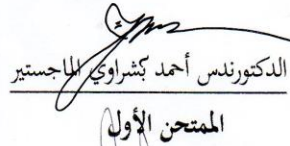 الدكتورندس أحمد بشراوي الماجستير
الممتحن الأول